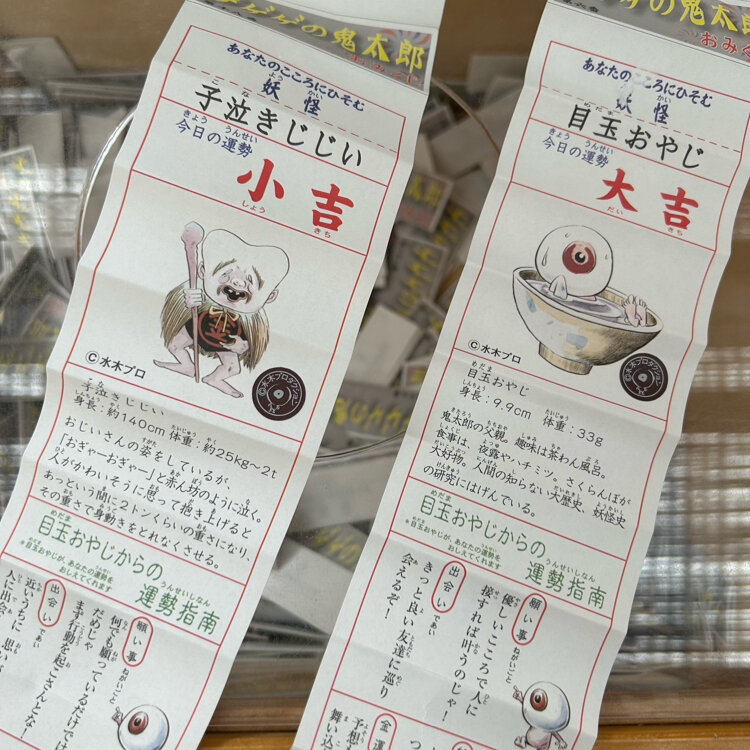 ゲゲゲの鬼太郎
おみくじ
あなたのこころにひそむ
よう かい
妖怪
こ な
子泣きじじい
きょう うんせい
今日の運勢
小吉
しょう きち
©水木プロ
子泣きじじい
身長：約140cm 体重：約25kg〜2t
おじいさんの姿をしているが、
「おぎゃーおぎゃー」と赤ん坊のように泣く。
人がかわいそうに思って抱き上げると
あっという間に2トンくらいの重さになり、
その重さで身動きをとれなくさせる。
めだま
目玉おやじからの
※目玉おやじが、あなたの運勢を
おしえてくれます
うんせいしなん
運勢指南
願い事
ねがいごと
何でも願っているだけでは
だめじゃ
まず行動を起こさんとな！
出会い
であい
近いうちに
人に出会
の鬼太郎
おみく
あなたのこころにひそむ
妖怪
めだま
目玉おやじ
きょう うんせい
今日の運勢
大吉
だい きち
©水木プロ
めだま
目玉おやじ
身長：9.9cm 体重：33g
鬼太郎の父親。趣味は茶わん風呂。
食事は、夜露やハチミツ。さくらんぼが
大好物。人間の知らない大歴史、妖怪史
の研究にはげんでいる。
めだま
目玉おやじからの
※目玉おやじが、あなたの運勢を
おしえてくれます
うんせいしなん
運勢指南
願い事
ねがいごと
優しいこころで人に
接すれば叶うのじゃ！
出会い
であい
きっと良い友達に巡り
会えるぞ！
金運
予想
舞い込